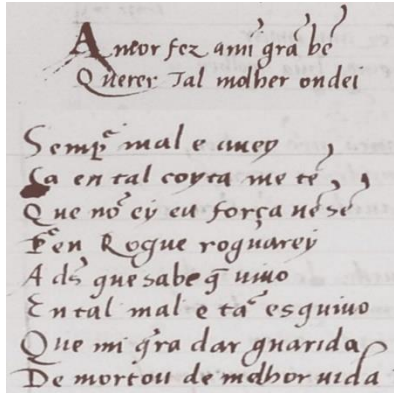 Amor fez ami grã bẽ
Querer Tal molher ondei
Semp̃ mal e auey
Ca en tal coyta me tẽ
Que nõ ey eu força nẽ sẽ
P̃ en Rogue roguarey
A ds̃ que sabe q̃ uiuo
En tal mal e tã esquiuo
Que mi q̃ra dar guarida
De mortou de melhor uida